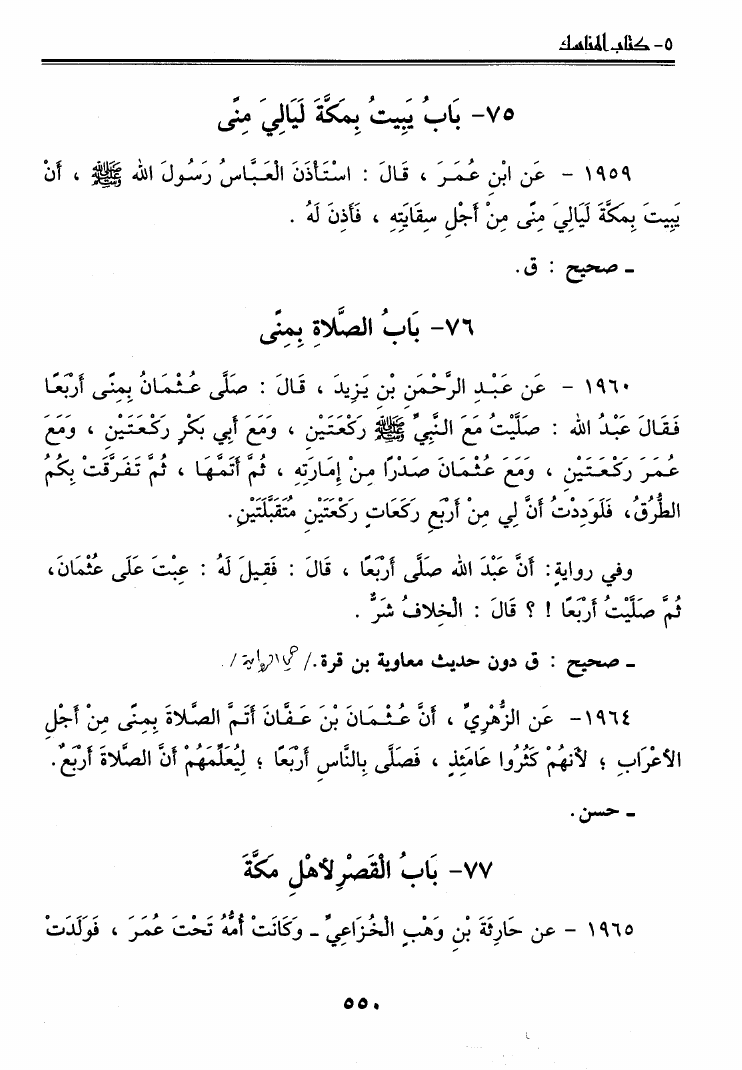 ٥- كتاب المناسك
٧٥- بَابُ يَبِيتُ بِمَكَّةَ لَيَالِيَ مِنًى
١٩٥٩ - عَن ابْنِ عُمَرَ ، قَالَ : اسْتَأْذَنَ الْعَبَّاسُ رَسُولَ الله ﷺ ، أَنْ
يَبِيتَ بِمَكَّةَ لَيَالِيَ مِنًى مِنْ أَجْلِ سِقَايَتِهِ ، فَأَذِنَ لَهُ .
ـ صحيح : ق.
٧٦- بَابُ الصَّلاةِ بِمِنًى
١٩٦٠ - عَن عَبْدِ الرَّحْمَنِ بْنِ يَزِيدَ ، قَالَ : صَلَّى عُثْمَانُ بِمِنًى أَرْبَعًا
فَقَالَ عَبْدُ الله : صَلَّيْتُ مَعَ النَّبِيِّ ﷺ رَكْعَتَيْنِ ، وَمَعَ أَبِي بَكْرٍ رَكْعَتَيْنِ ، وَمَعَ
عُمَرَ رَكْعَتَيْنِ ، وَمَعَ عُثْمَانَ صَدْرًا مِنْ إِمَارَتِهِ ، ثُمَّ أَتَمَّهَا ، ثُمَّ تَفَرَّقَتْ بِكُمُ
الطُّرُقُ، فَلَوَدِدْتُ أَنَّ لِي مِنْ أَرْبَعِ رَكَعَاتٍ رَكْعَتَيْنِ مُتَقَبَّلَتَيْنِ.
وفي روايةٍ: أَنَّ عَبْدَ الله صَلَّى أَرْبَعًا ، قَالَ : فَقِيلَ لَهُ : عِبْتَ عَلَى عُثْمَانَ،
ثُمَّ صَلَّيْتُ أَرْبَعًا ! ؟ قَالَ : الْخِلافُ شَرٌّ .
ـ صحيح : ق دون حديث معاوية بن قرة./
١٩٦٤- عَن الزُّهْرِيِّ ، أَنَّ عُثْمَانَ بْنَ عَفَّانَ أَتَمَّ الصَّلاةَ بِمِنًى مِنْ أَجْلِ
الأعْرَابِ ؛ لأنهُمْ كَثُرُوا عَامَئِذٍ ، فَصَلَّى بِالنَّاسِ أَرْبَعًا ؛ لِيُعَلِّمَهُمْ أَنَّ الصَّلاةَ أَرْبَعٌ.
ـ حسن .
٧٧- بَابُ الْقَصْرِ لأهْلِ مَكَّةَ
١٩٦٥ - عن حَارِثَةَ بْنِ وَهْبٍ الْخُزَاعِيِّ ـ وَكَانَتْ أُمُّهُ تَحْتَ عُمَرَ ، فَوَلَدَتْ
٥٥٠